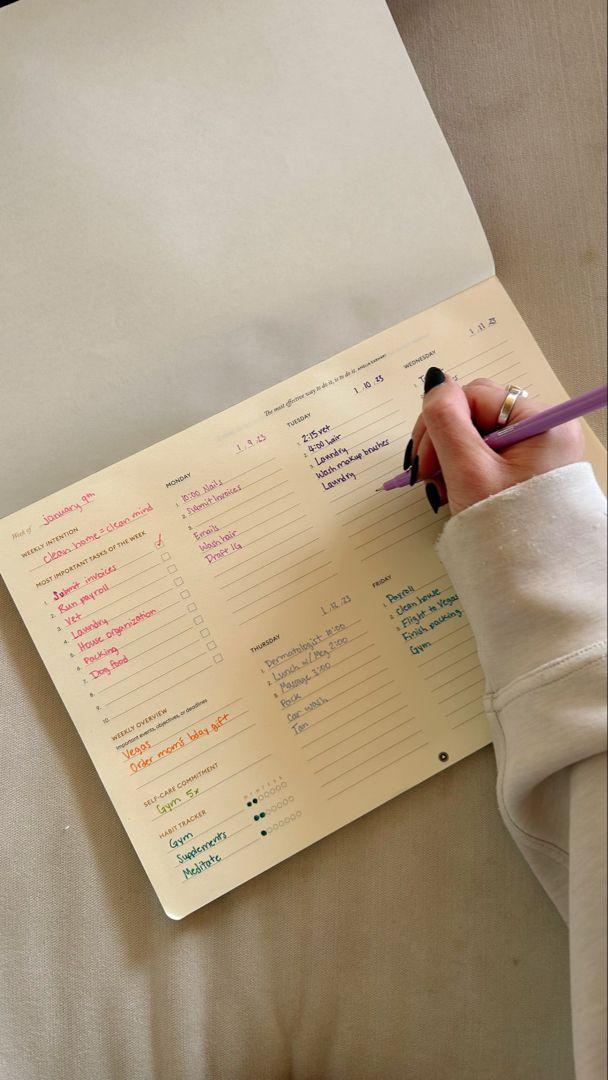 Week of January 9th
WEEKLY INTENTION
Clean home = clean mind
MOST IMPORTANT TASKS OF THE WEEK
1. Submit invoices
2. Run payroll
3. Vet
4. Laundry
5. House organization
6. Packing
7. Dog food
8.
9.
10.
WEEKLY OVERVIEW
Important events, objectives, or deadlines
Vegas
Order moms bday gift
SELF-CARE COMMITMENT
Gym 5x
HABIT TRACKER
Gym
Supplements
Meditate
The most effective way to do it, is to do it. AMELIA EARHART
MONDAY
1.9.23
1. 10:00 Nails
2. Submit Invoices
3.
Emails
Wash hair
Draft IG
TUESDAY
1.10.23
1. 2:15 vet
2. 4:00 hair
3. Laundry
Wash makeup brushes
Laundry
WEDNESDAY
1.
THURSDAY
1.12.23
1. Dermatologist 10:00
2. Lunch w/ Meg 2:00
3. Massage 3:00
Pack
Car wash
Tan
FRIDAY
1. Payroll
2. Clean house
3. Flight to Vegas
Finish packing
Gym